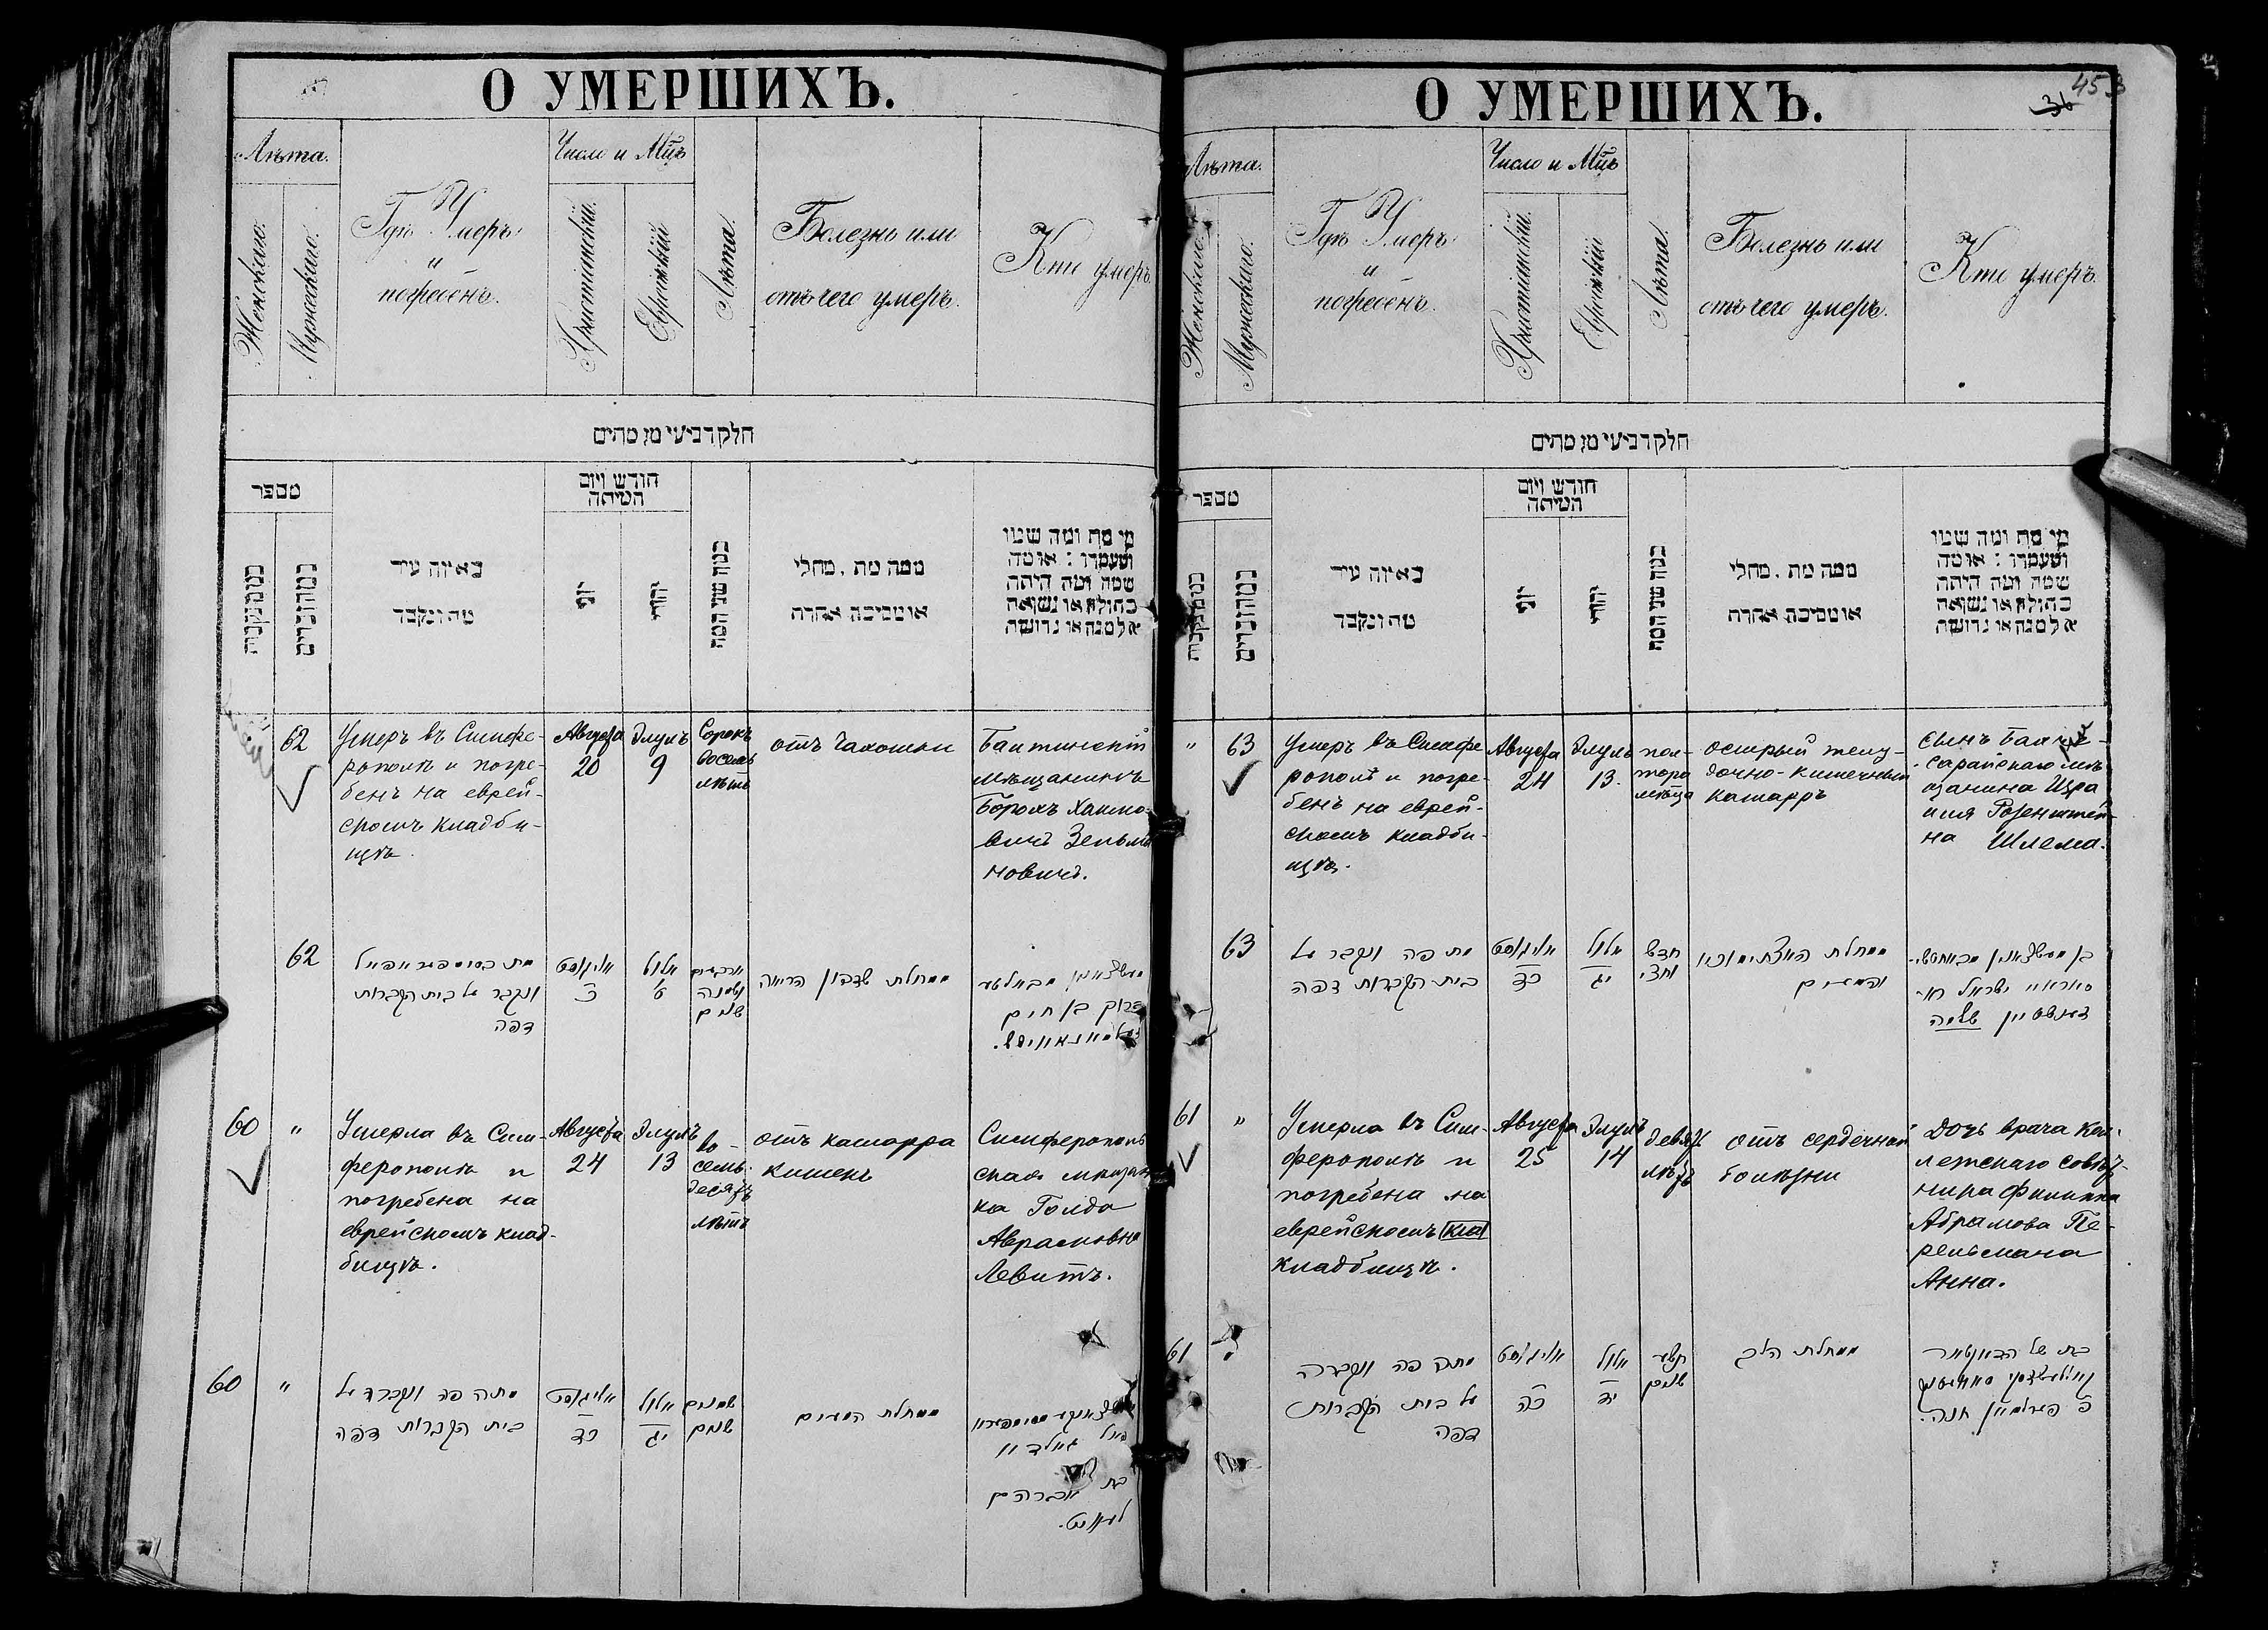 О УМЕРШИХЪ.
Лѣта.
Женскаго.
Мужескаго.
Гдѣ Умеръ
и
погребенъ.
Число и Мцъ
Христіанскій.
Еврейскій
Лѣта.
Болезнь или
отъ чего умеръ.
Кто умеръ.
חלק רביעי מן מתים
מספר
מהנקבות
מהזכרים
באיזה עיר
מת ונקבר
חודש ויום
המיתה
יוני
יהודי
כמה שני המת
ממה מת, מחלי
או מסיבה אחרת
מי מת ומה שמו
ומעמדו : או מה
שמה ומה היתה
בתולה או נשואה
אלמנה או גרושה
62
Умеръ въ Симфе-
рополѣ и погре-
бенъ на еврей-
скомъ кладби-
щѣ.
Августа
20
Элулъ
9
Сорокъ
восемь
лѣтъ
отъ чахотки
мѣщанинъ
Борохъ Хаимо-
вичъ
новичъ.
62
ונקבר על בית הקברות
דפה
אויגוסט
כ
אלול
ט
ארבעים
ושמנה
שנים
ממחלת שדפון הריאה
ברוך בן חיים
60 "
Умерла въ Сим-
ферополѣ и
погребена на
еврейскомъ клад-
бищѣ.
Августа
24
Элулъ
13
во-
семь-
десятъ
лѣтъ
отъ катарра
кишекъ
Симферополь
ская мѣщан
ка Голда
Аврамовна
Левитъ.
60 "
מתה פה ונקברה על
בית הקברות דפה
אויגוסט
כד
אלול
יג
שמנים
שנים
ממחלת המעים
בת אברהם
לעוויט.
О УМЕРШИХЪ.
36
453
Лѣта.
Женскаго.
Мужескаго.
Гдѣ Умеръ
и
погребенъ.
Число и Мцъ
Христіанскій.
Еврейскій
Лѣта.
Болезнь или
отъ чего умеръ.
Кто умеръ.
חלק רביעי מן מתים
מספר
מהנקבות
מהזכרים
באיזה עיר
מת ונקבר
חודש ויום
המיתה
יוני
יהודי
כמה שני המת
ממה מת, מחלי
או מסיבה אחרת
מי מת ומה שמו
ומעמדו : או מה
שמה ומה היתה
בתולה או נשואה
אלמנה או גרושה
" 63
Умеръ въ Симфе
рополѣ и погре-
бенъ на еврей-
скомъ кладби-
щѣ.
Августа
24
Элулъ
13.
пол-
тора
мѣсца
острый желу-
дочно-кишечный
катарръ
сынъ Бахчи-
сарайскаго мѣ
щанина Изра
иля Розенштей-
на Шлема.
63
מת פה ונקבר על
בית הקברות דפה
אויגוסט
כד
אלול
יג
חדש
וחצי
והמעים
ישראל
שלמה
61 "
Умерла въ Сим-
ферополѣ и
погребена на
еврейскомъ кла
кладбищѣ.
Августа
25
Элулъ
14
девять
лѣтъ
отъ сердечной
болѣзни
Дочь врача Кол-
лежскаго совѣт-
ника Филиппа
Абрамова Пе-
рельмана
Анна.
61 "
מתה פה ונקברה
על בית הקברות
דפה
אויגוסט
כה
אלול
יד
תשע
שנים
ממחלת הלב
בת של
פערלמאן חנה.